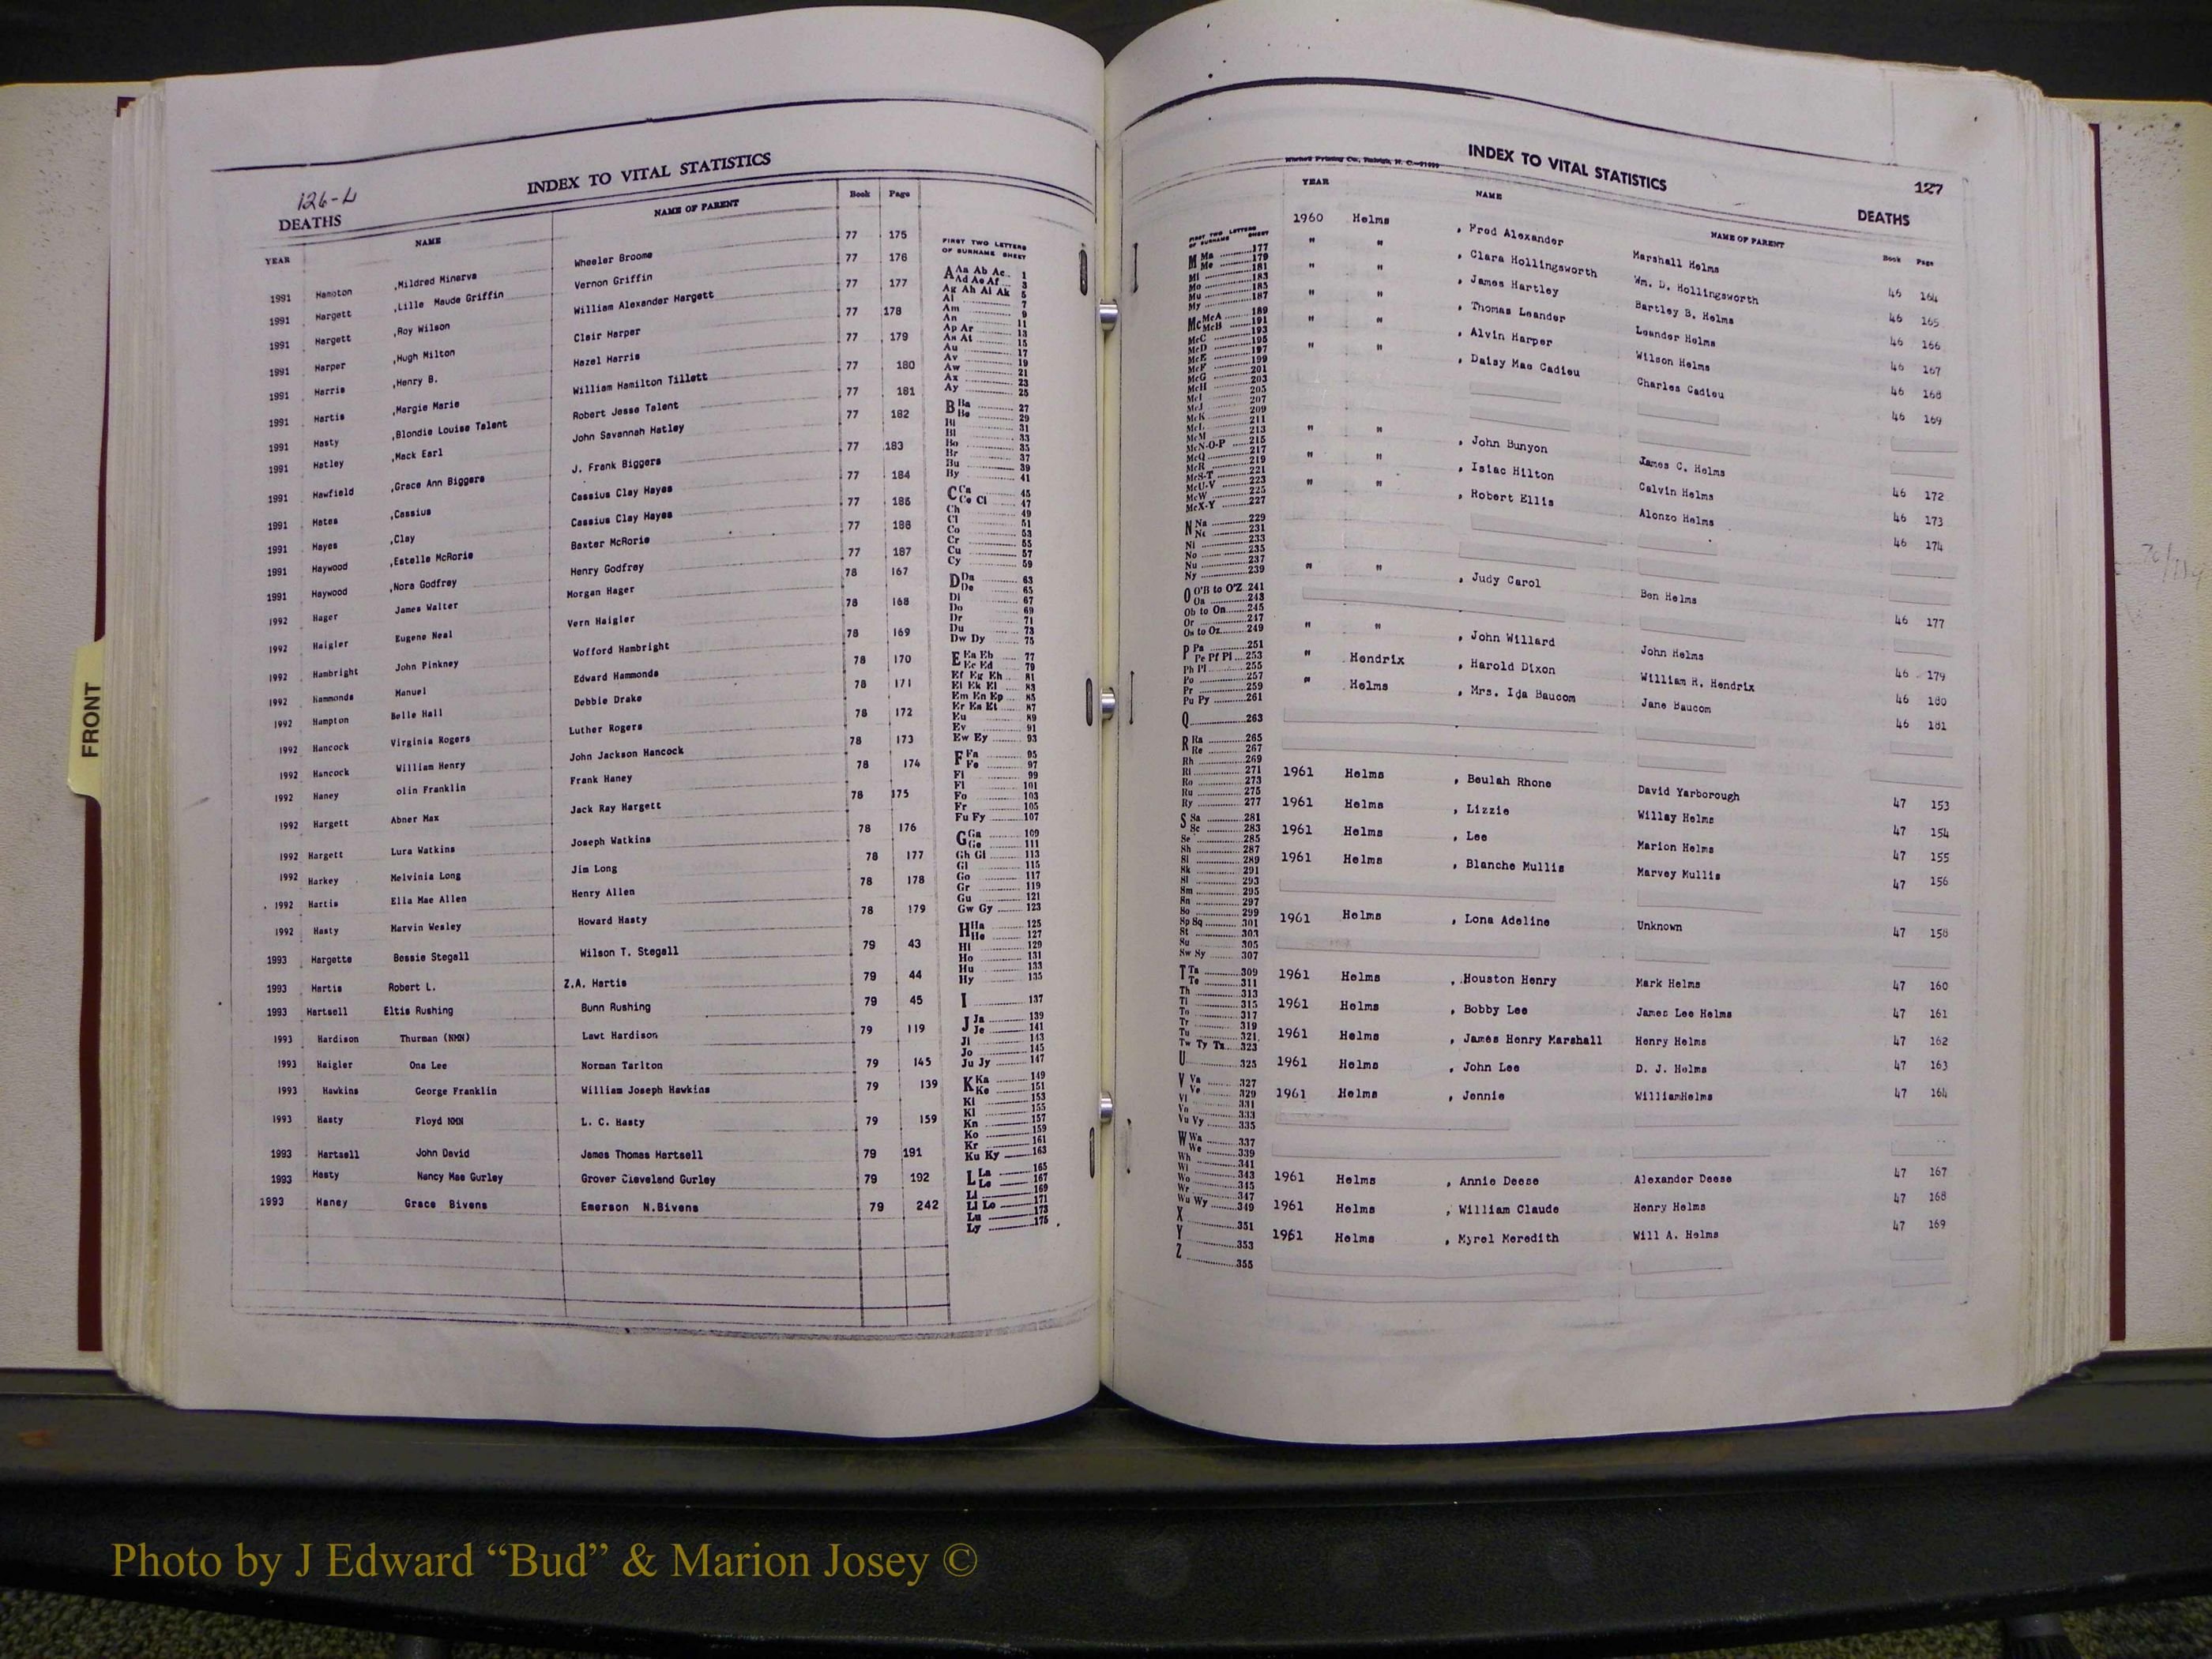 126-L
INDEX TO VITAL STATISTICS
DEATHS
YEAR NAME NAME OF PARENT Book Page
1991 Hampton ,Mildred Minerva Wheeler Broome 77 175
1991 Hargett ,Lille Maude Griffin Vernon Griffin 77 176
1991 Hargett ,Roy Wilson William Alexander Hargett 77 177
1991 Harper ,Hugh Milton Clair Harper 77 178
1991 Harris ,Henry B. Hazel Harris 77 179
1991 Hartis ,Margie Marie William Hamilton Tillett 77 180
1991 Hasty ,Blondie Louise Talent Robert Jesse Talent 77 181
1991 Hatley ,Mack Earl John Savannah Hatley 77 182
1991 Hawfield ,Grace Ann Biggers J. Frank Biggers 77 183
1991 Hates ,Cassius Cassius Clay Hayes 77 184
1991 Hayes ,Clay Cassius Clay Hayes 77 185
1991 Haywood ,Estelle McRorie Baxter McRorie 77 186
1991 Haywood ,Nora Godfrey Henry Godfrey 77 187
1992 Hager James Walter Morgan Hager 78 167
1992 Haigler Eugene Neal Vern Haigler 78 168
1992 Hambright John Pinkney Wofford Hambright 78 169
1992 Hammonds Manuel Edward Hammonds 78 170
1992 Hampton Belle Hall Debbie Drake 78 171
1992 Hancock Virginia Rogers Luther Rogers 78 172
1992 Hancock William Henry John Jackson Hancock 78 173
1992 Haney olin Franklin Frank Haney 78 174
1992 Hargett Abner Max Jack Ray Hargett 78 175
1992 Hargett Lura Watkins Joseph Watkins 78 176
1992 Harkey Melvinia Long Jim Long 78 177
1992 Hartis Ella Mae Allen Henry Allen 78 178
1992 Hasty Marvin Wesley Howard Hasty 78 179
1993 Hargette Bessie Stegall Wilson T. Stegall 79 43
1993 Hartis Robert L. Z.A. Hartis 79 44
1993 Hartsell Eltis Rushing Bunn Rushing 79 45
1993 Hardison Thurman (NMN) Lawt Hardison 79 119
1993 Haigler Ona Lee Norman Tarlton 79 145
1993 Hawkins George Franklin William Joseph Hawkins 79 139
1993 Hasty Floyd NMN L. C. Hasty 79 159
1993 Hartsell John David James Thomas Hartsell 79 191
1993 Hasty Nancy Mae Gurley Grover Cleveland Gurley 79 192
1993 Haney Grace Bivens Emerson N.Bivens 79 242
FIRST TWO LETTERS
OF SURNAME SHEET
A Aa Ab Ac 1
Ad Ae Af 3
Ag Ah Ai Ak 5
Al 7
Am 9
An 11
Ap Ar 13
As At 15
Au 17
Av 19
Aw 21
Ax 23
Ay 25
B Ba 27
Be 29
Bi 31
Bl 33
Bo 35
Br 37
Bu 39
By 41
C Ca 45
Ce Ci 47
Ch 49
Cl 51
Co 53
Cr 55
Cu 57
Cy 59
D Da 63
De 65
Di 67
Do 69
Dr 71
Du 73
Dw Dy 75
E Ea Eb 77
Ec Ed 79
Ef Eg Eh 81
Ei Ek El 83
Em En Ep 85
Er Es Et 87
Eu 89
Ev 91
Ew Ey 93
F Fa 95
Fe 97
Fi 99
Fl 101
Fo 103
Fr 105
Fu Fy 107
G Ga 109
Ge 111
Gh Gi 113
Gl 115
Go 117
Gr 119
Gu 121
Gw Gy 123
H Ha 125
He 127
Hi 129
Ho 131
Hu 133
Hy 135
I 137
J Ja 139
Je 141
Ji 143
Jo 145
Ju Jy 147
K Ka 149
Ke 151
Ki 153
Kl 155
Kn 157
Ko 159
Kr 161
Ku Ky 163
L La 165
Le 167
Li 169
Ll Lo 171
Lu 173
Ly 175
FRONT
INDEX TO VITAL STATISTICS
127
DEATHS
YEAR NAME NAME OF PARENT Book Page
1960 Helms , Fred Alexander Marshall Helms 46 164
" " , Clara Hollingsworth Wm. D. Hollingsworth 46 165
" " , James Hartley Bartley B. Helms 46 166
" " , Thomas Leander Leander Helms 46 167
" " , Alvin Harper Wilson Helms 46 168
" " , Daisy Mae Cadieu Charles Cadieu 46 169
" " , John Bunyon James C. Helms 46 172
" " , Isiac Hilton Calvin Helms 46 173
" " , Robert Ellis Alonzo Helms 46 174
" " , Judy Carol Ben Helms 46 177
" " , John Willard John Helms 46 179
" Hendrix , Harold Dixon William R. Hendrix 46 180
" Helms , Mrs. Ida Baucom Jane Baucom 46 181
1961 Helms , Beulah Rhone David Yarborough 47 153
1961 Helms , Lizzie Willay Helms 47 154
1961 Helms , Lee Marion Helms 47 155
1961 Helms , Blanche Mullis Marvey Mullis 47 156
1961 Helms , Lona Adeline Unknown 47 158
1961 Helms , Houston Henry Mark Helms 47 160
1961 Helms , Bobby Lee James Lee Helms 47 161
1961 Helms , James Henry Marshall Henry Helms 47 162
1961 Helms , John Lee D. J. Helms 47 163
1961 Helms , Jennie WilliamHelms 47 164
1961 Helms , Annie Deese Alexander Deese 47 167
1961 Helms , William Claude Henry Helms 47 168
1961 Helms , Myrel Meredith Will A. Helms 47 169
FIRST TWO LETTERS
OF SURNAME SHEET
M Ma 177
Me 179
Mi 181
Mo 183
Mu 185
My 187
Mc McA 189
McB 191
McC 193
McD 195
McE 197
McF 199
McG 201
McH 203
McI 205
McJ 207
McK 209
McL 211
McM 213
McN-O-P 215
McQ 217
McR 219
McS-T 221
McU-V 223
McW 225
McX-Y 227
N Na 229
Ne 231
Ni 233
No 235
Nu 237
Ny 239
O O'B to O'Z 241
Oa 243
Ob to On 245
Or 247
Os to Oz 249
P Pa 251
Pe Pf Pi 253
Ph Pl 255
Po 257
Pr 259
Pu Py 261
Q 263
R Ra 265
Re 267
Rh 269
Ri 271
Ro 273
Ru 275
Ry 277
S Sa 281
Sc 283
Se 285
Sh 287
Si 289
Sk 291
Sl 293
Sm 295
Sn 297
So 299
Sp Sq 301
St 303
Su 305
Sw Sy 307
T Ta 309
Te 311
Th 313
Ti 315
To 317
Tr 319
Tu 321
Tw Ty Tz 323
U 325
V Va 327
Ve 329
Vi 331
Vo 333
Vu Vy 335
W Wa 337
We 339
Wh 341
Wi 343
Wo 345
Wr 347
Wu Wy 349
X 351
Y 353
Z 355
Photo by J Edward “Bud” & Marion Josey ©